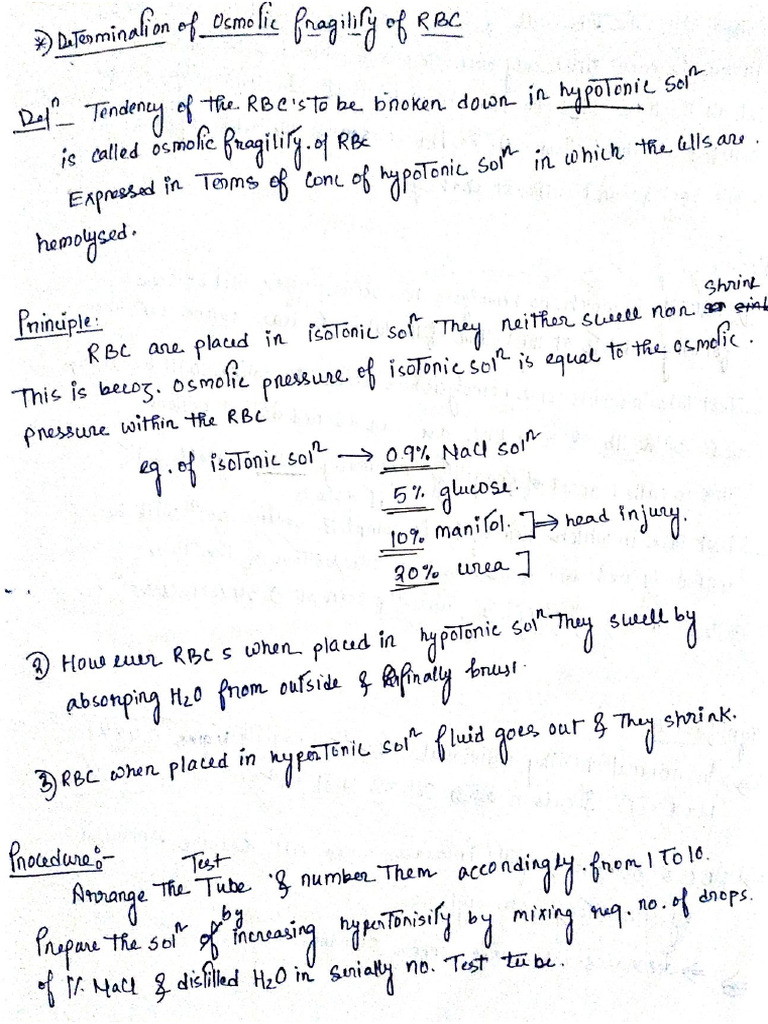 *) Determination of Osmotic fragility of RBC
Defn - Tendency of the RBC's to be broken down in hypoTonic Soln
is called osmotic fragility. of RBC
Expressed in Terms of conc of hypoTonic Soln in which the cells are.
hemolysed.
Principle:
Shrink
RBC are placed in isoTonic soln They neither swell nor
This is becoz. osmotic pressure of isoTonic soln is equal to the osmotic.
pressure within the RBC
eg. of isoTonic soln → 0.9% Nacl soln
5% glucose.
10% manitol. ]⇒ head injury.
20% urea ]
2) However RBC s when placed in hypoTonic soln They swell by
absorping H2O from outside & finally brust.
3) RBC when placed in hyperTonic soln fluid goes out & They shrink.
Procedure:-
Test
Arrange The Tube & number Them accordingly. from 1 To 10.
by
Prepare the soln of increasing hyperTonisity by mixing req. no. of drops.
of 1% Nacl & distilled H2O in serially no. Test tube.